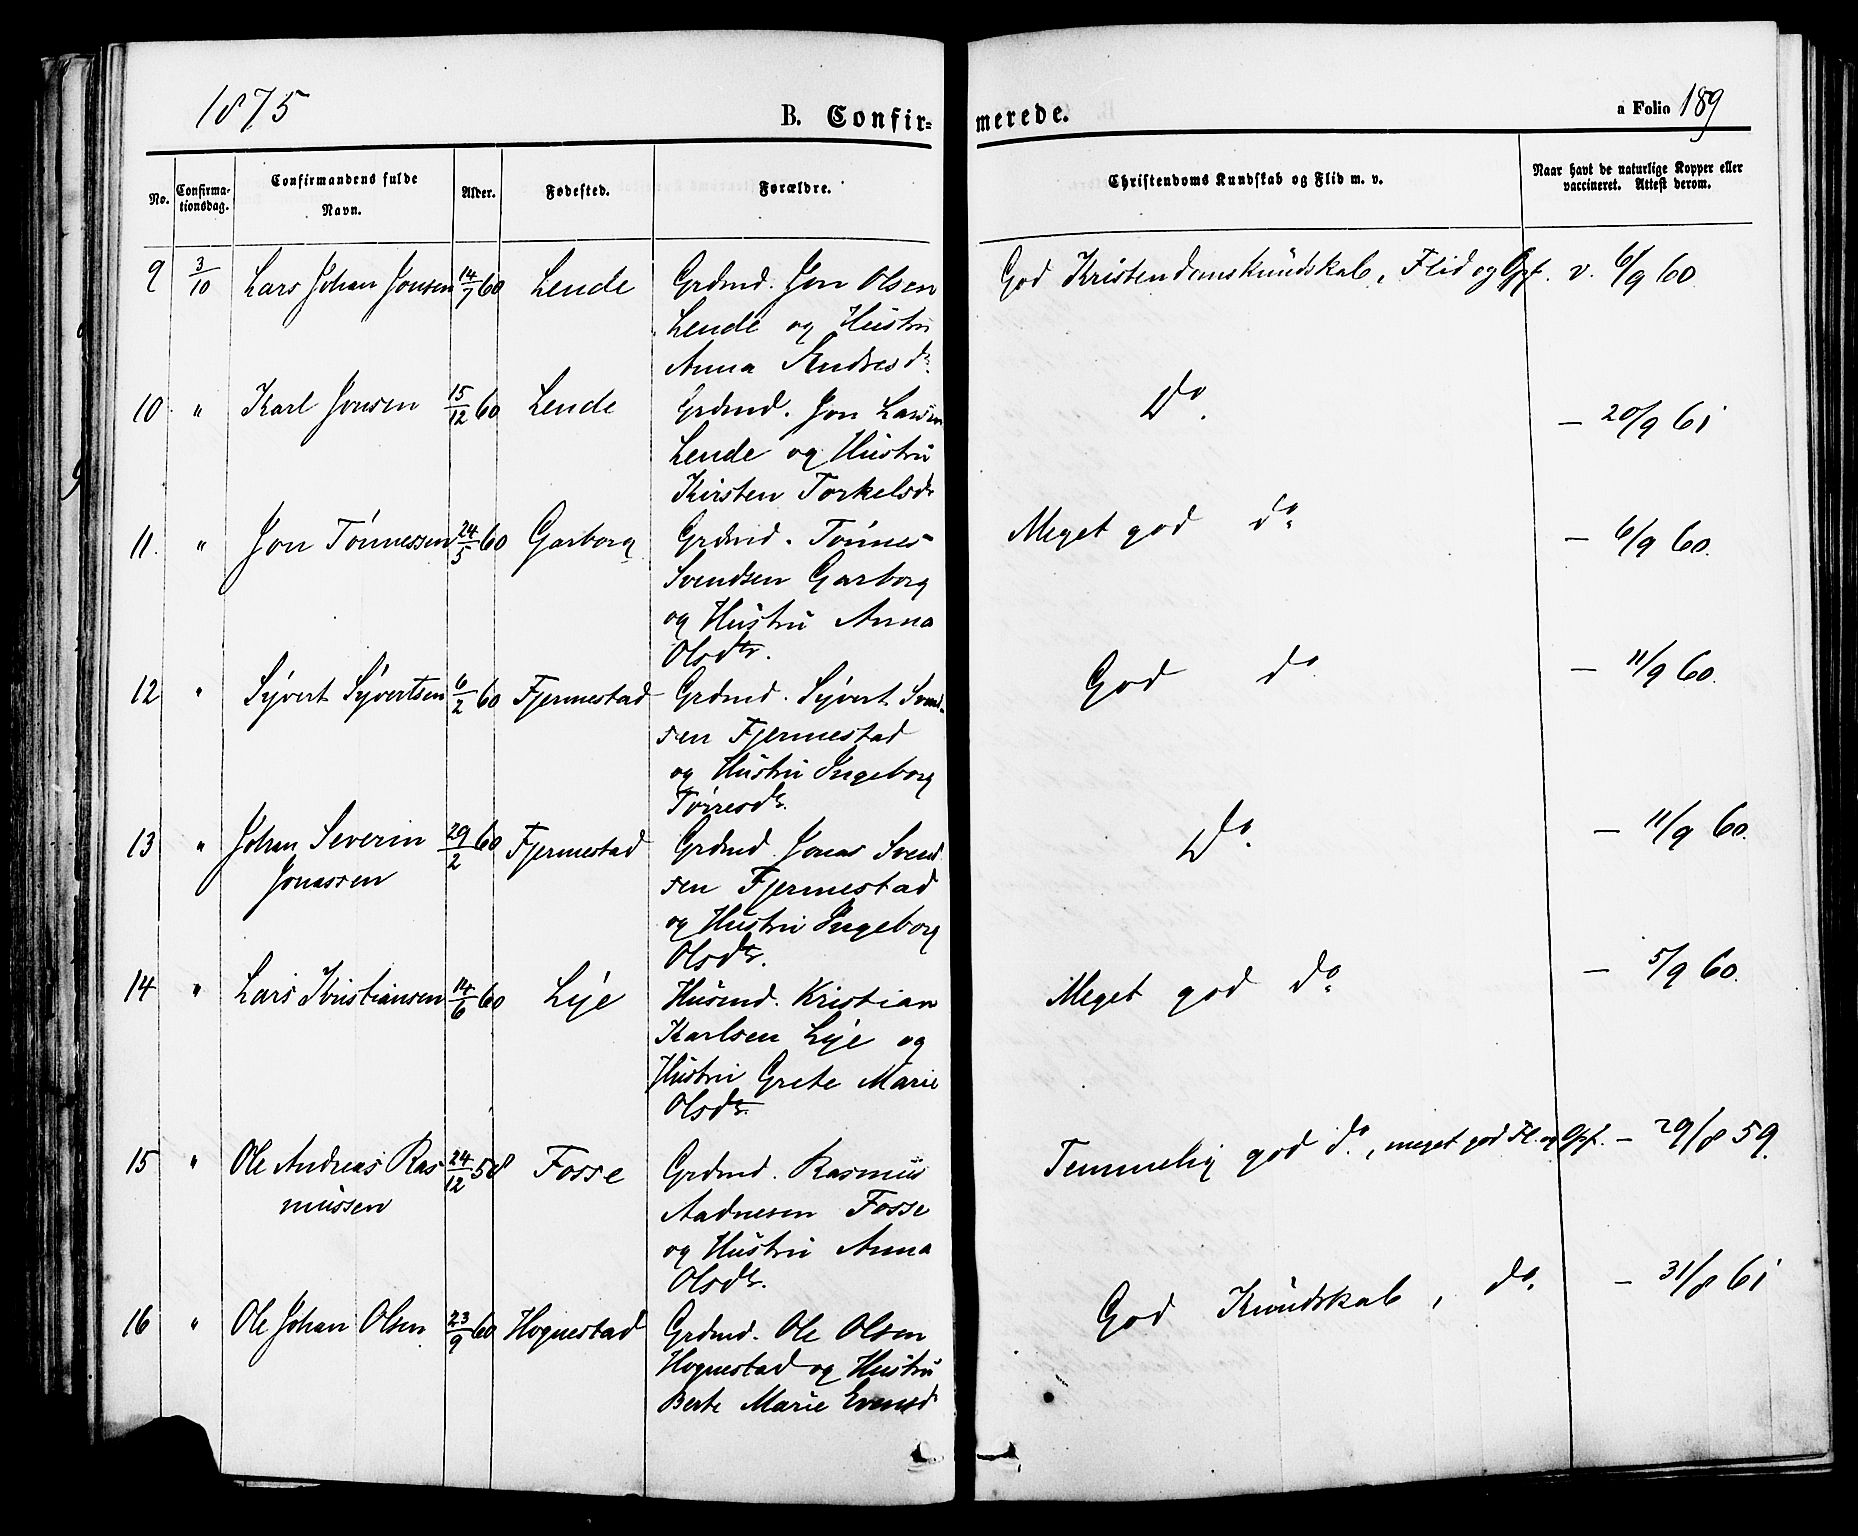 1875
B. Confir= merede.
a Folio 189
No. Confirma-tionsdag. Confirmandens fulde Navn. Alder. Fødested. Forældre. Christendoms Kundskab og Flid m. v. Naar havt de naturlige Kopper eller vaccineret. Attest derom.
9 3/10 Lars Johan Jonsen 14/7 60 Lende Grdmd. Jon Olsen God Kristendomskundskab, Flid og Opf. v. 6/9 60.
Lende og Hustru
Anna Endresdr.
10. " Karl Jonsen 15/12 60 Lende Grdmd. Jon Larsen Do. — 20/9 61
Lende og Hustru
Kirsten Torkelsdr
11. " Jon Tönnessen 24/5 60 Garborg Grdmd. Tönnes Meget god do. — 6/9 60.
Svendsen Garborg
og Hustru Anna
Olsdtr.
12 " Syvert Syvertsen 6/2 60 Fjermestad Grdmd. Syvert Svend- God do — 11/9 60.
sen Fjermestad
og Hustru Ingeborg
Torresdr.
13 " Johan Severin 29/2 60 Fjermestad Grdmd. Jonas Svend Do. — 11/9 60.
Jonassen sen Fjermestad
og Hustru Ingeborg
Olsdtr.
14 " Lars Kristiansen 14/6 60 Lye Husmd. Kristian Meget god do. — 5/9 60.
Karlsen Lye og
Hustru Grete Marie
Olsdtr.
15 " Ole Andreas Ras 24/12 58 Fosse Grdmd. Rasmus Temmelig god do., meget god Fl. og Opf. — 29/8 59.
mussen Aadnesen Fosse
og Hustru Anna
Olsdtr.
16 " Ole Johan Olsen 23/9 60 Hognestad Grdmd. Ole Olsen God Kundskab, do. — 31/8 61
Hognestad og Hustru
Berte Marie Evensd